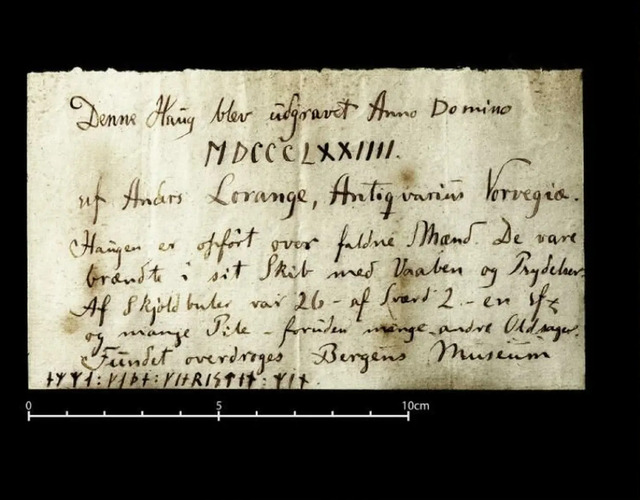 Denne Haug blev udgravet Anno Domino
MDCCCLXXIIII.
af Anders Lorange, Antiqvarius Norvegiæ.
Haugen er opført over faldne Mænd. De vare
brændte i sit Skib med Vaaben og Prydelser
Af Skjoldbuler var 26 - af Sværd 2 - en
og mange Pile - foruden mange andre Oldsager.
Fundet overdroges Bergens Museum
0 5 10cm